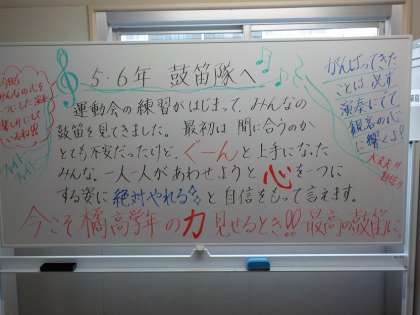 5・6年 鼓笛隊へ
運動会の練習がはじまって、みんなの
鼓笛を見てきました。最初は間に合うのか
とても不安だったけど、ぐーんと上手になった
みんな。一人一人があわせようと心を一つに
する姿に絶対やれる!と自信をもって言えます。
今こそ橘高学年の力見せるとき!!最高の鼓笛に
がんばってきた
ことは必ず
演奏にでて
観客の心
に響くよ!
大丈夫!!